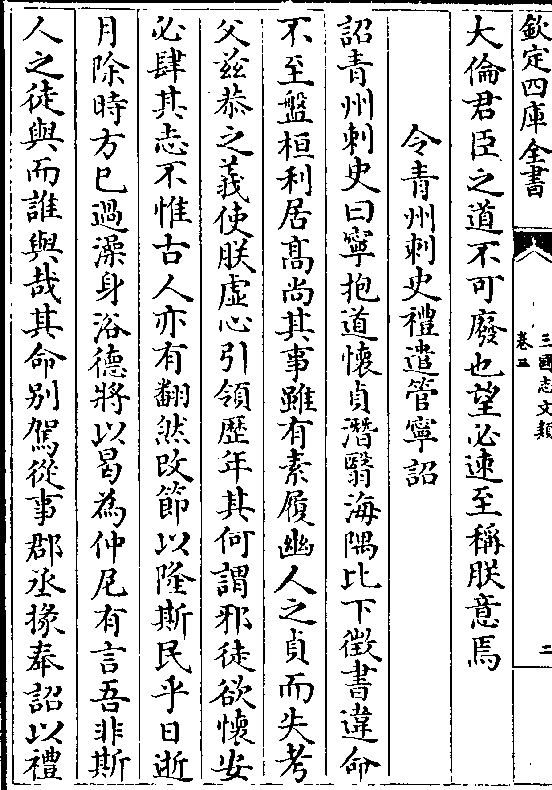 欽定四庫全書
三國志文類
卷三
二
大倫君臣之道不可廢也望必速至稱朕意焉
令青州刺史禮遣管寧詔
詔青州刺史曰寧抱道懷貞潛翳海隅比下徵書違命
不至盤桓利居高尚其事雖有素履幽人之貞而失考
父茲恭之義使朕虛心引領歷年其何謂邪徒欲懷安
必肆其志不惟古人亦有翻然改節以隆斯民乎日逝
月除時方已過澡身浴德將以曷為仲尼有言吾非斯
人之徒與而誰與哉其命別駕從事郡丞掾奉詔以禮